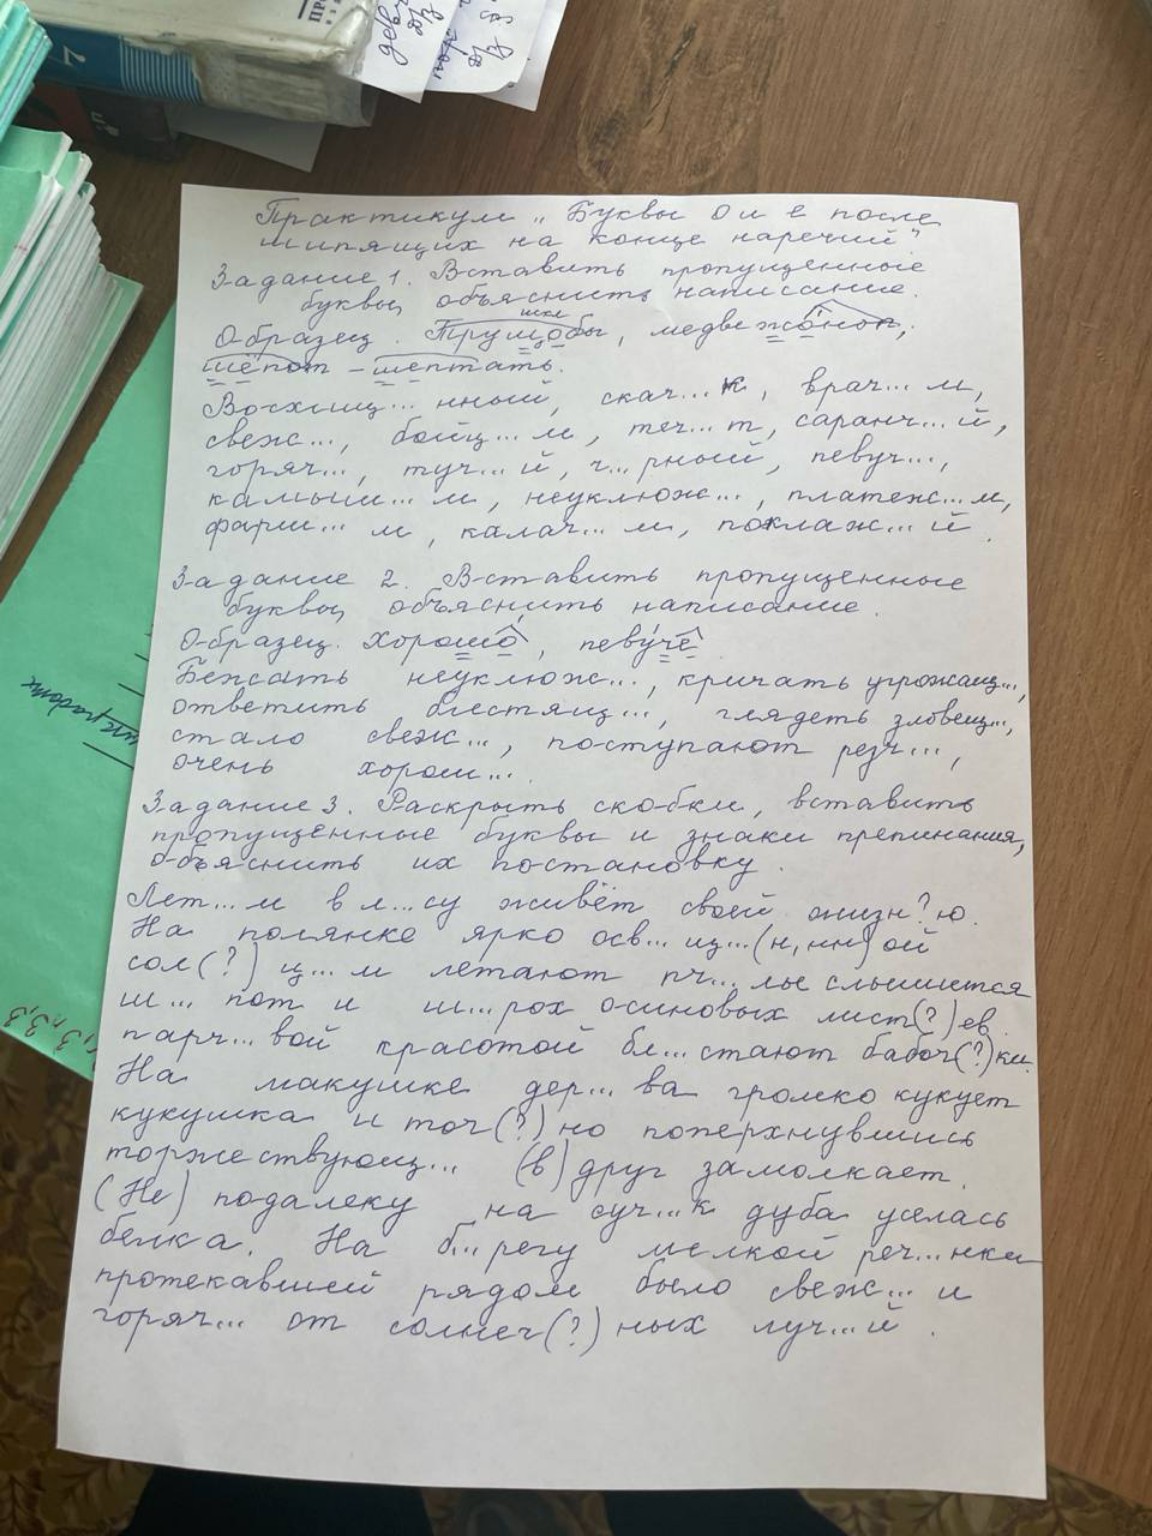 7
Практикум „Буквы О и е после
шипящих на конце наречий"
Задание 1. Вставить пропущенные
буквы, объяснить написание.
искл
Образец. Трущобы, медвежонок,
шёпот – шептать.
Восхищ... нный, скач...к, врач... м,
свеж..., бойц... м, теч... т, саранч... й,
горяч..., туч... й, ч...рный, певуч...,
камыш... м, неуклюж..., платеж... м,
фарш... м, калач... м, поклаж... й.
Задание 2. Вставить пропущенные
буквы, объяснить написание.
Образец. Хорошо, певуче
Бежать неуклюж..., кричать угрожающ...,
ответить блестящ..., глядеть зловещ...,
стало свеж..., поступают резч...,
очень хорош... .
Задание 3. Раскрыть скобки, вставить
пропущенные буквы и знаки препинания,
объяснить их постановку.
Лет... м в л...су живёт своей жизн?ю.
На полянке ярко осв... щ...(н, нн)ой
сол(?) ц... м летают пч... лы слышится
ш... пот и ш...рох осиновых лист(?)ев.
парч... вой красотой бл... стают бабоч(?)ки.
На макушке дер... ва громко кукует
кукушка и точ(?)но поперхнувшись
торжествующ... (в)друг замолкает.
(Не) подалеку на суч...к дуба уселась
белка. На б... регу мелкой реч...нки
протекавшей рядом было свеж... и
горяч... от солнеч(?)ных луч...й.